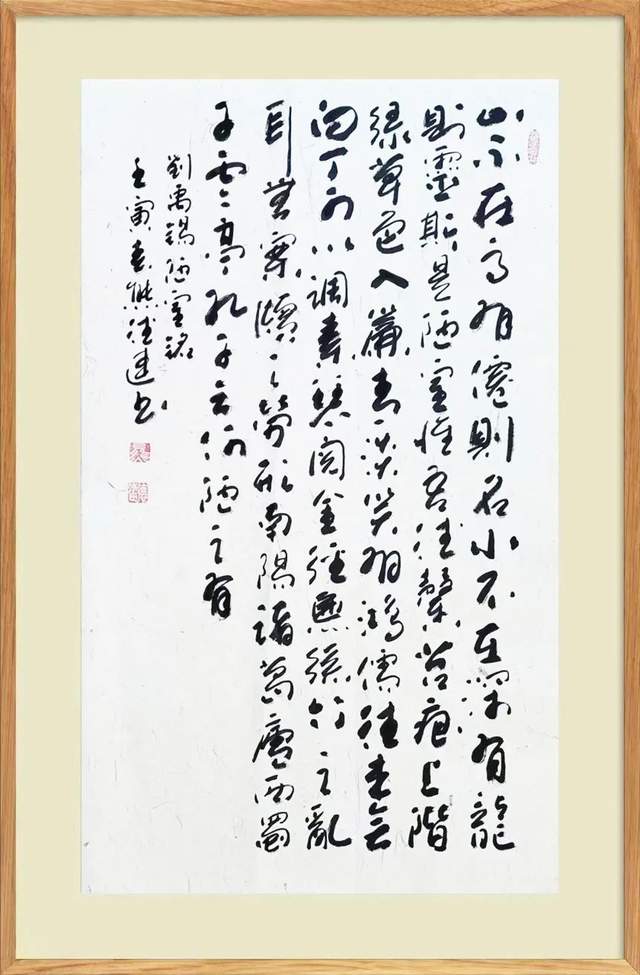 山不在高有僊則名水不在深有龍
則靈斯是陋室惟吾德馨苔痕上階
綠草色入簾青談笑有鴻儒往來無
白丁可以調素琴閱金經無絲竹之亂
耳無案牘之勞形南陽諸葛廬西蜀
子雲亭孔子云何陋之有
劉禹錫陋室銘
壬寅春熊德建書